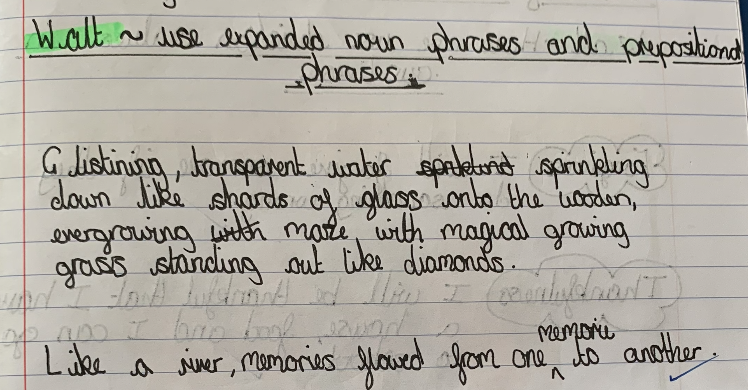 Walt ~ use expanded noun phrases and prepositional
phrases.
Glistining, transparent water sprinkling
down like shards of glass onto the wooden,
evergrowing with maze with magical growing
grass standing out like diamonds.
memorie
Like a river, memories flowed from one ^ to another.